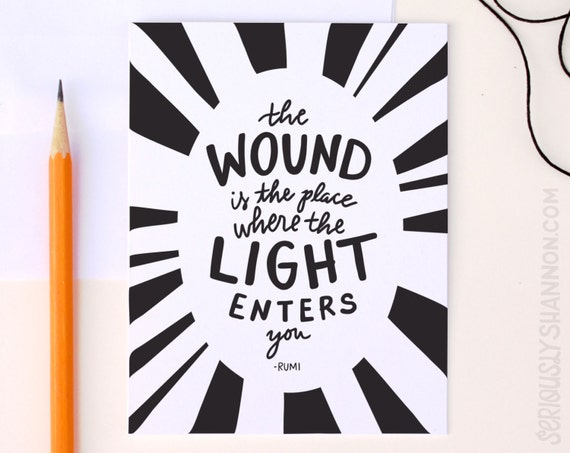 the
WOUND
is the place
where the
LIGHT
ENTERS
you
-RUMI
SERIOUSLYSHANNON.COM